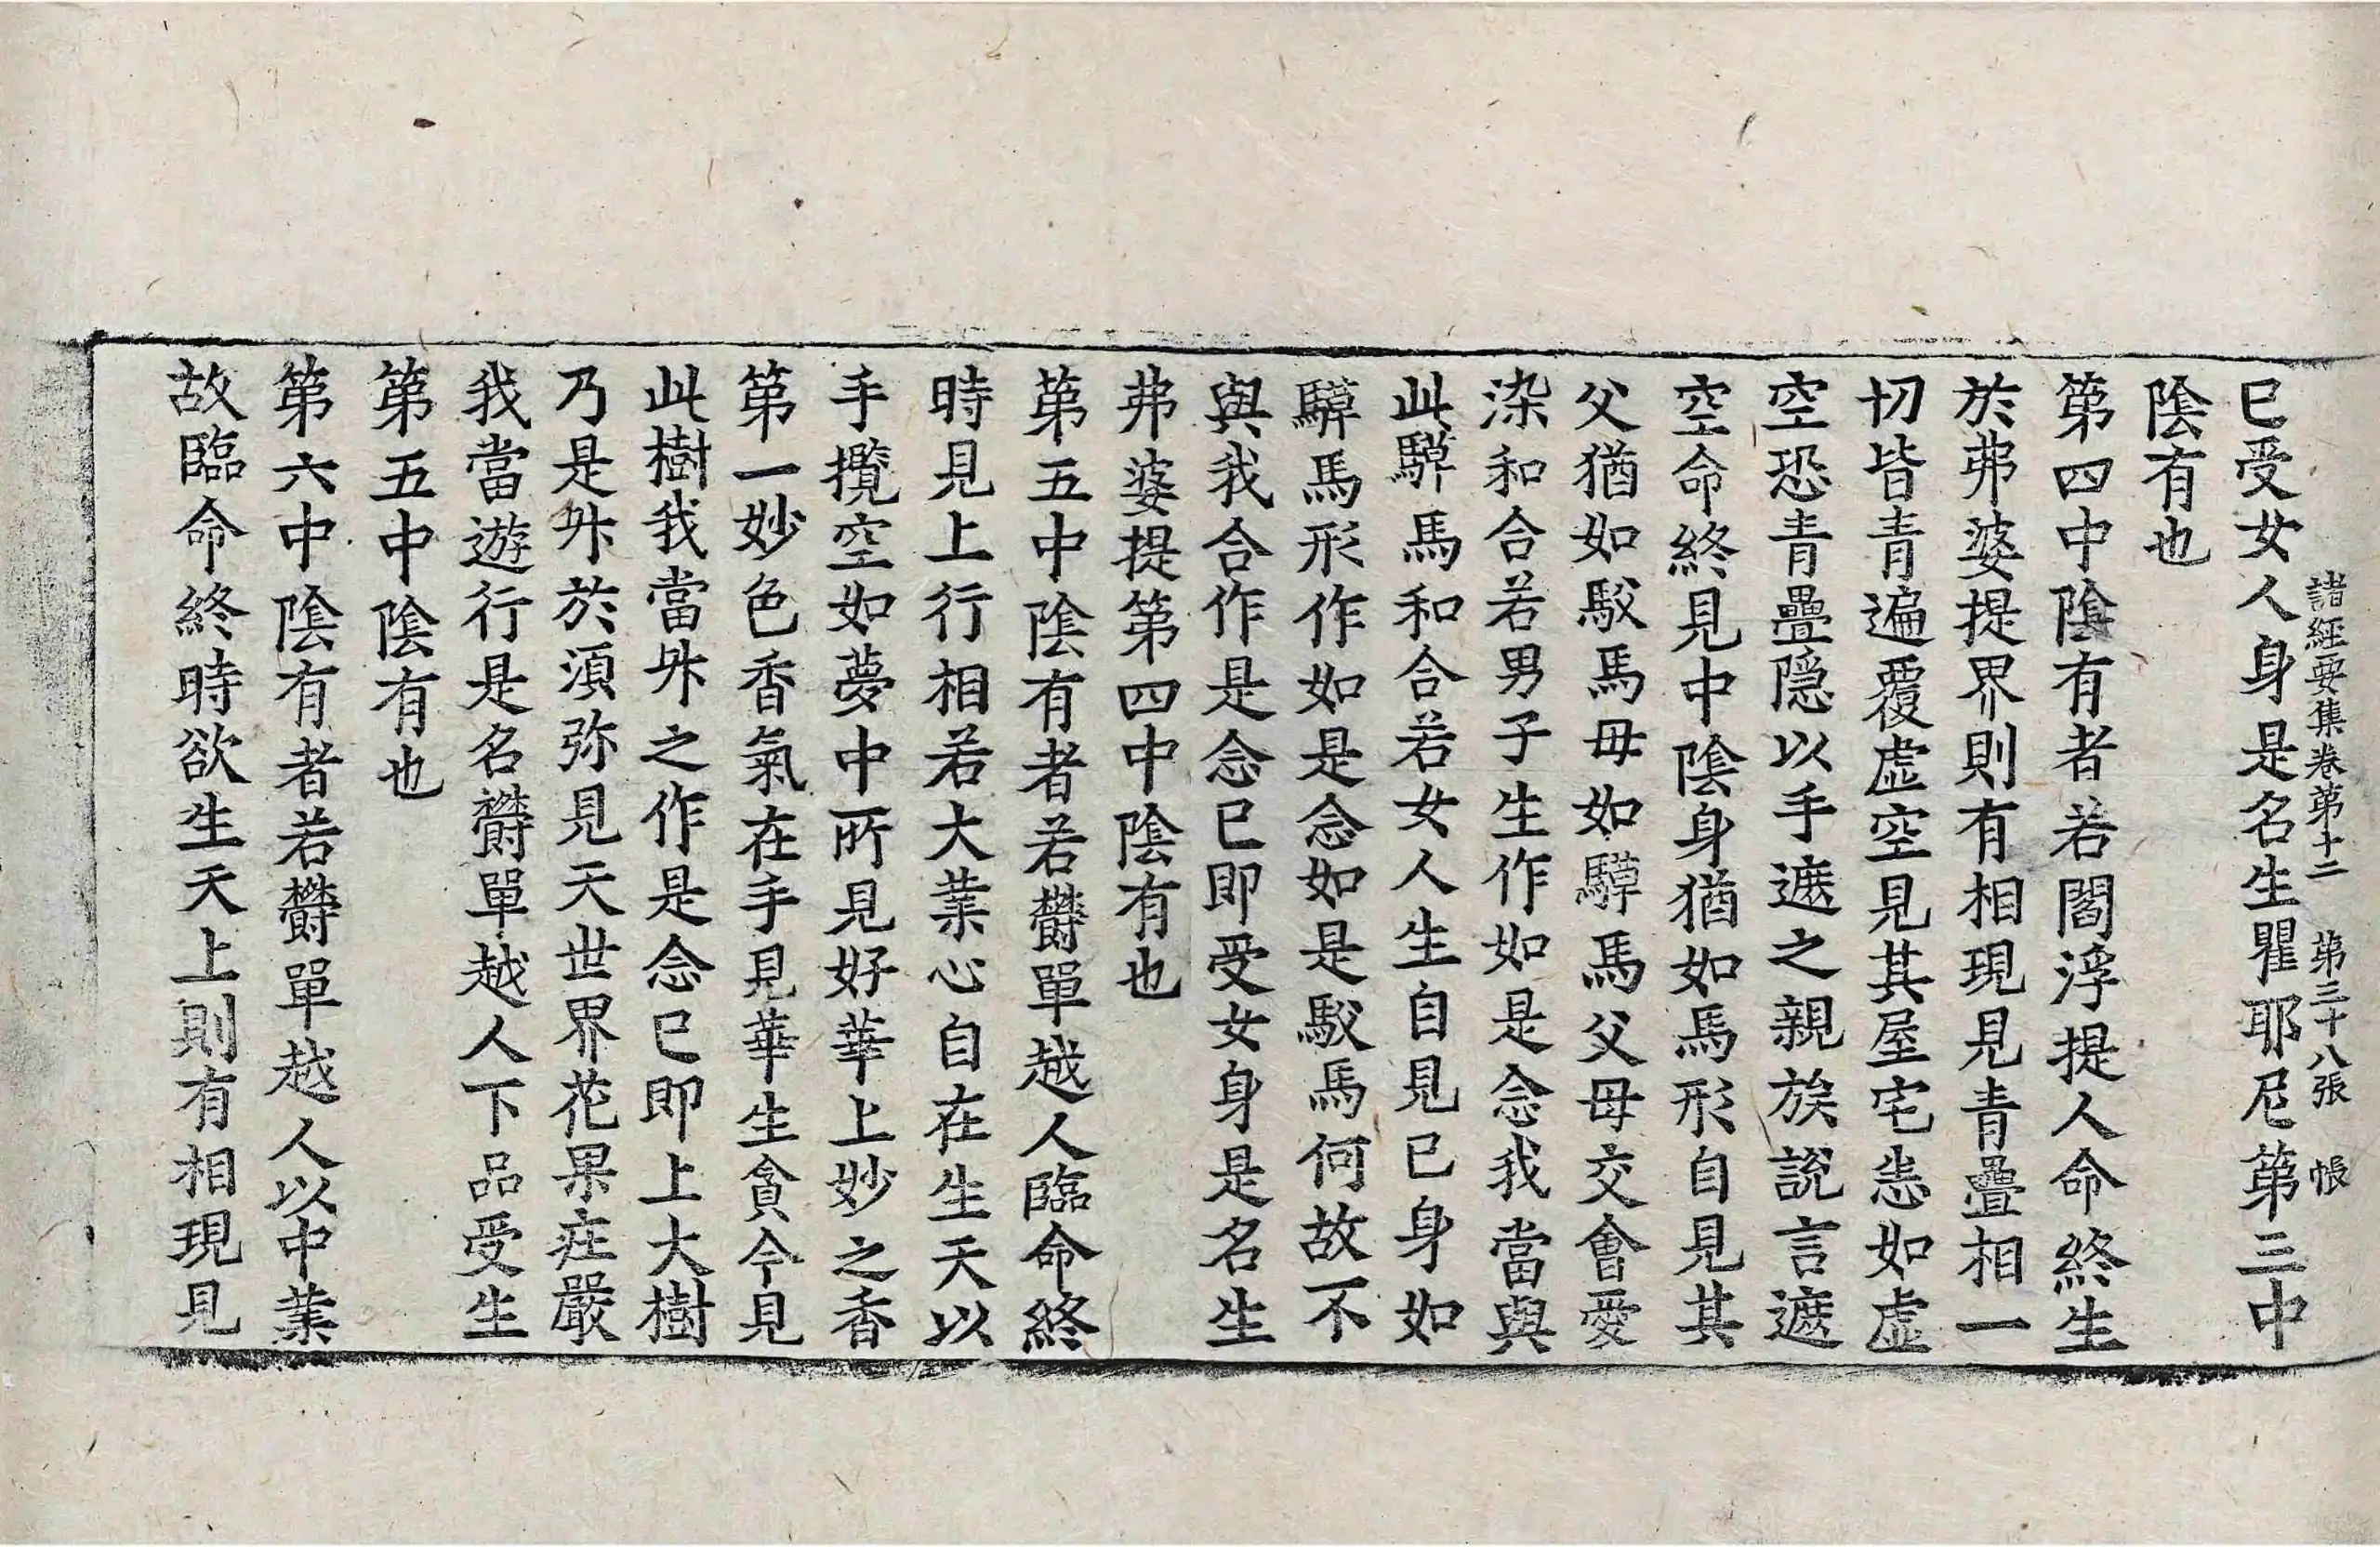 諸經要集卷第十二 第三十八張 帳
已受女人身是名生瞿耶尼第三中
陰有也
第四中陰有者若閻浮提人命終生
於弗婆提界則有相現見青疊相一
切皆青遍覆虛空見其屋宅恚如虛
空恐青疊隱以手遮之親族說言遮
空命終見中陰身猶如馬形自見其
父猶如駮馬母如騲馬父母交會愛
染和合若男子生作如是念我當與
此騲馬和合若女人生自見已身如
騲馬形作如是念如是駮馬何故不
與我合作是念已即受女身是名生
弗婆提第四中陰有也
第五中陰有者若欝單越人臨命終
時見上行相若大業心自在生天以
手攬空如夢中所見好華上妙之香
第一妙色香氣在手見華生貪今見
此樹我當升之作是念已即上大樹
乃是升於須弥見天世界花果庄嚴
我當遊行是名欝單越人下品受生
第五中陰有也
第六中陰有者若欝單越人以中業
故臨命終時欲生天上則有相現見